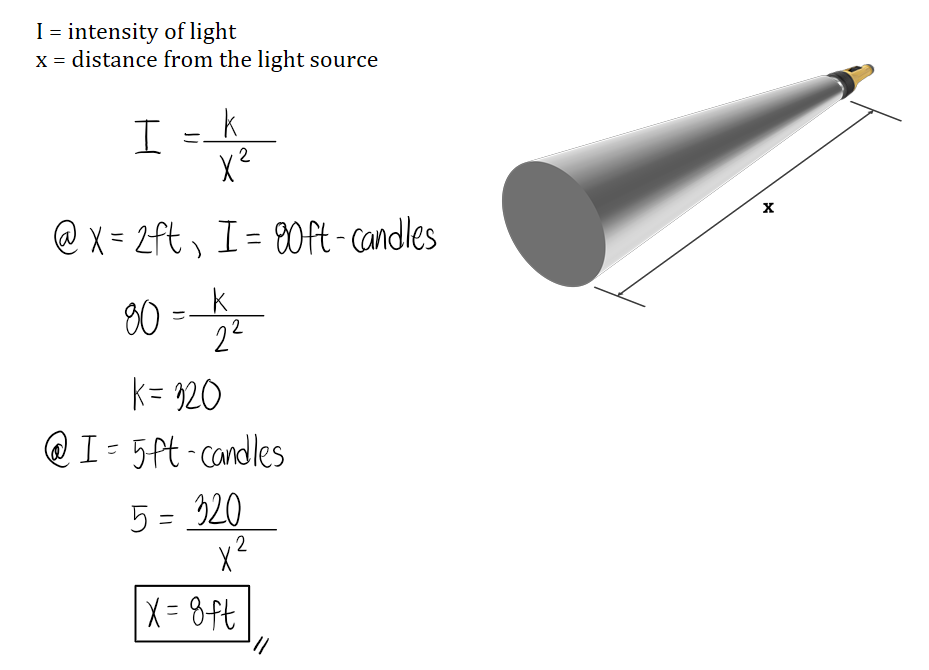 I = intensity of light
x = distance from the light source
I = k/x²
@ x = 2ft, I = 80ft-candles
80 = k/2²
k = 320
@ I = 5ft-candles
5 = 320/x²
x = 8ft
x